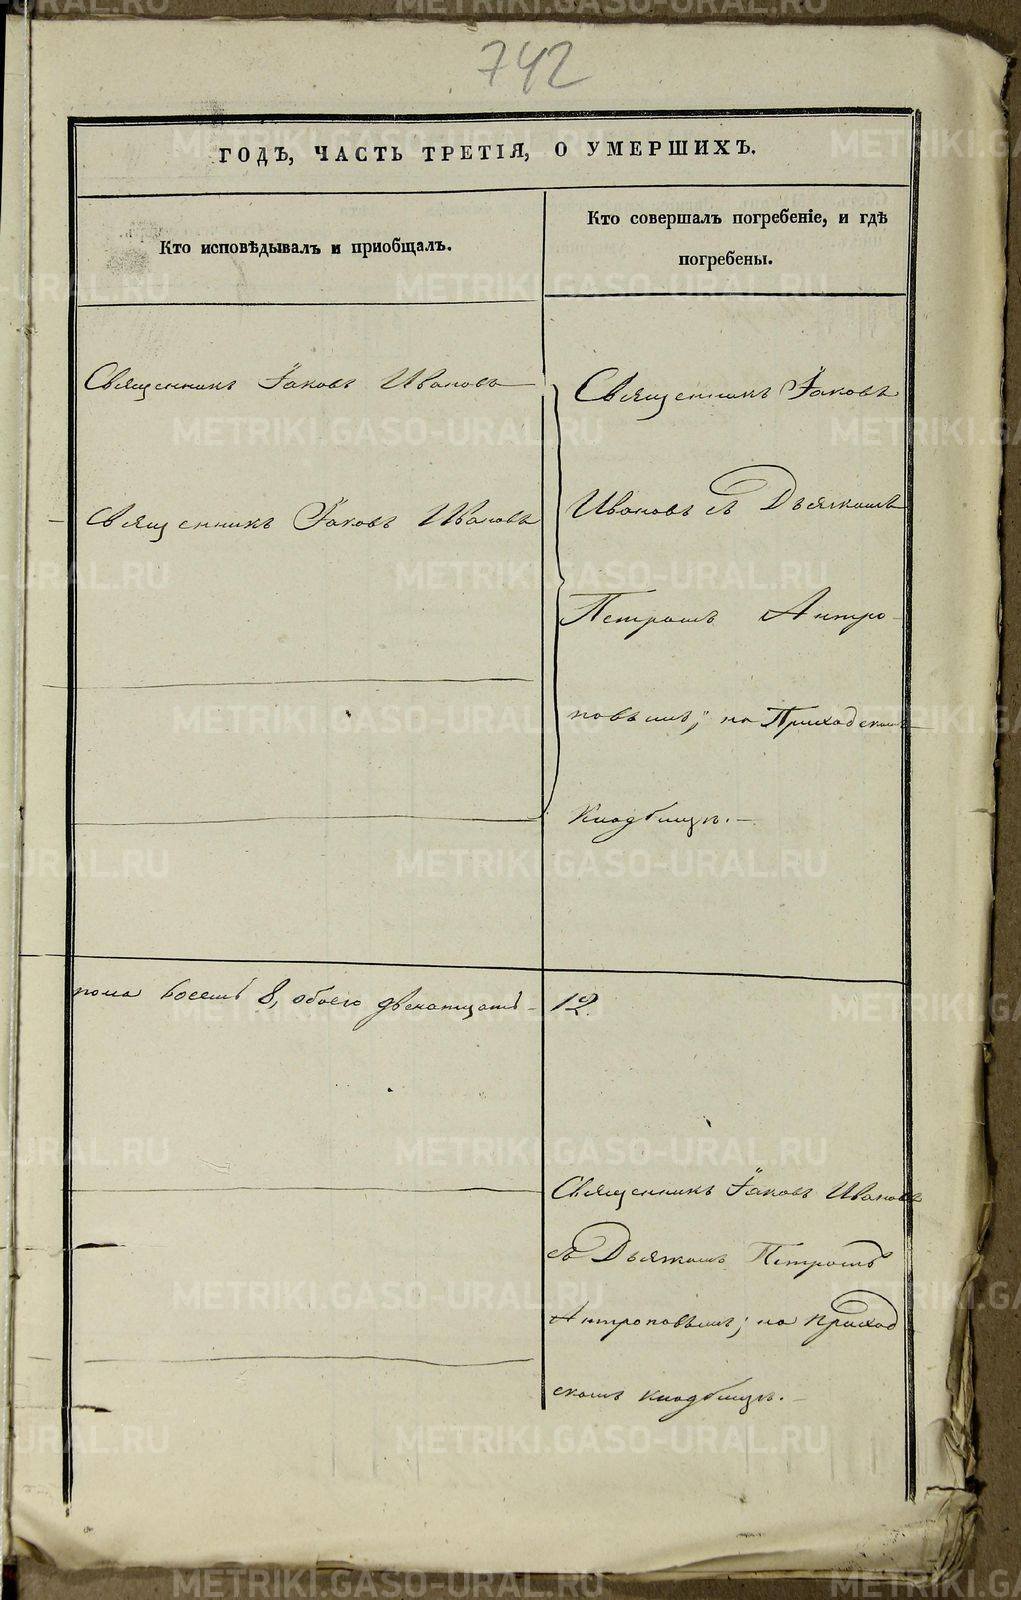 742
ГОДЪ, ЧАСТЬ ТРЕТІЯ, О УМЕРШИХЪ.
Кто исповѣдывалъ и приобщалъ.
Кто совершалъ погребеніе, и гдѣ
погребены.
Священникъ Іаковъ Ивановъ
Священникъ Іаковъ Ивановъ
Священникъ Іаковъ
Ивановъ съ Дьячкомъ
Петромъ Антро-
повымъ; на Приходскомъ
Кладбищѣ.—
пола восемь 8, обоего двенатцать - 12.
Священникъ Іаковъ Ивановъ
съ Дьячкомъ Петромъ
Антроповымъ; на приход
скомъ кладбищѣ.—
METRIKI.GASO-URAL.RU